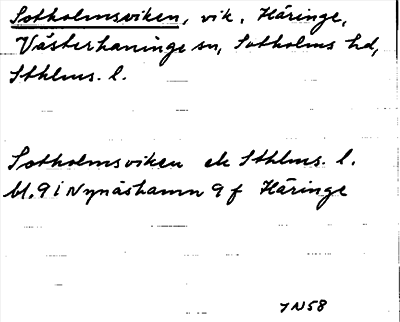 Sotholmsviken, vik, Häringe,
Västerhaninge sn, Sotholms hd,
Sthlms. l.
Sotholmsviken ek Sthlms. l.
bl. 9 i Nynäshamn 9 f Häringe
7N58